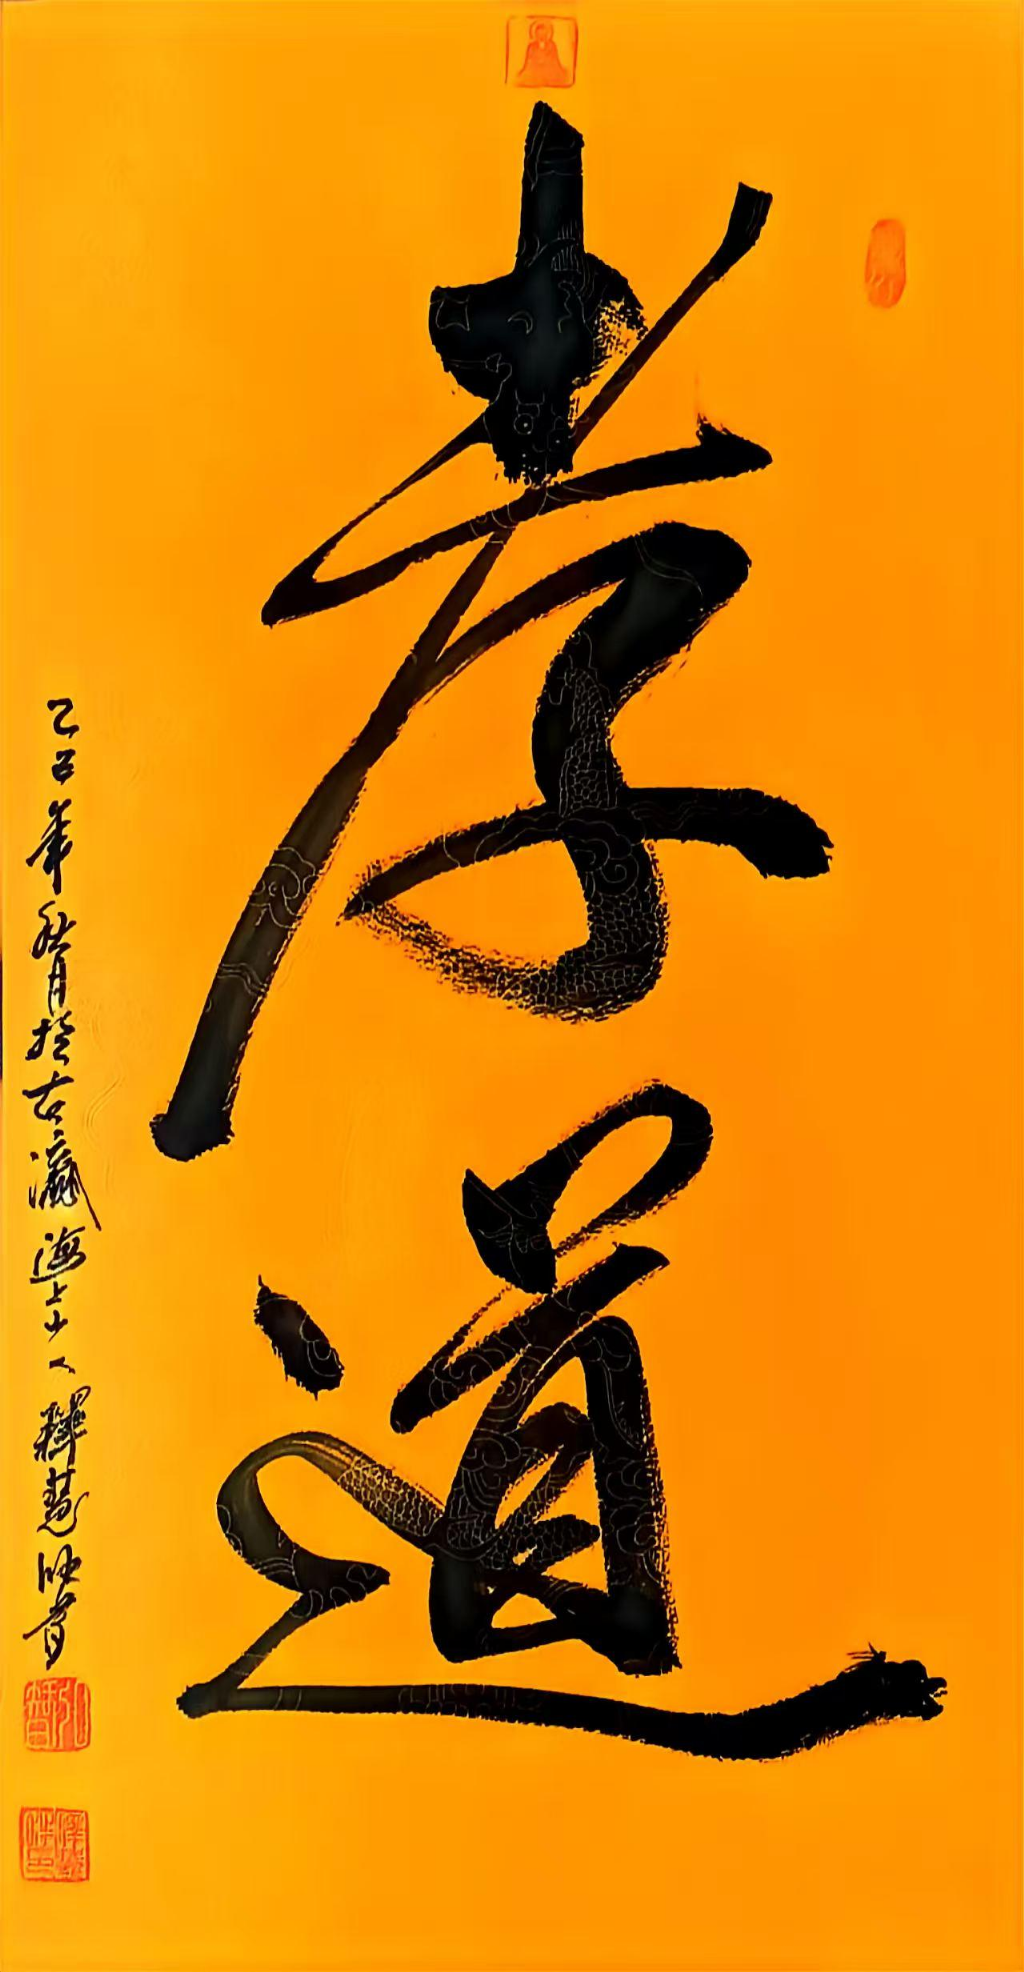 孝道
年秋月於古瀛海上人釋慧書